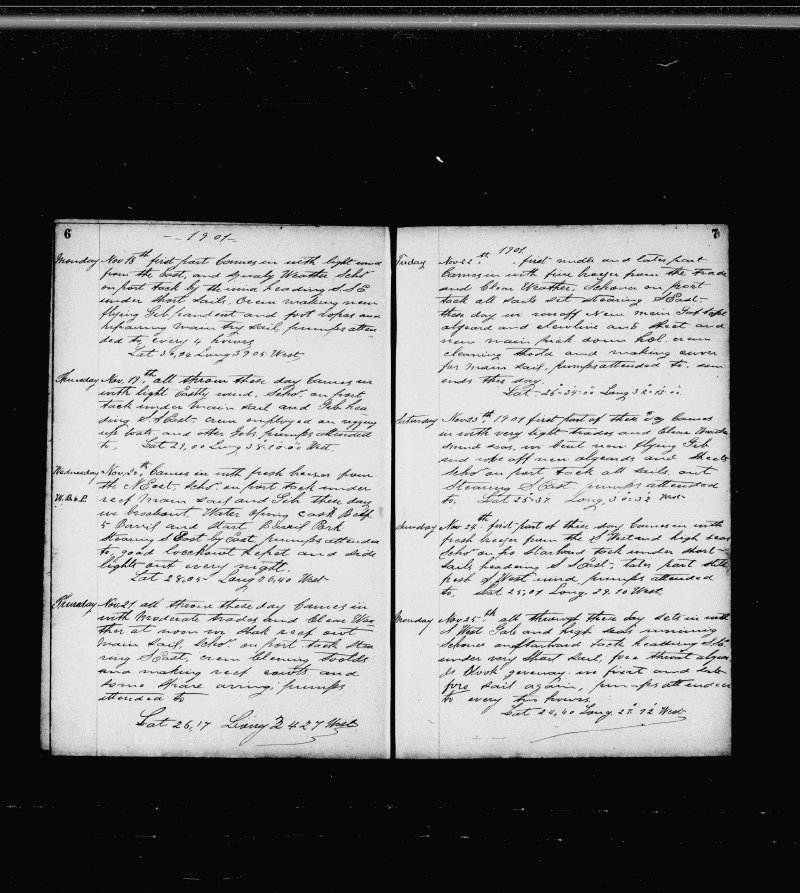 6
1901
Monday Nov 18th first part Comes in with light wind
from the East, and Squaly Weather Schr
on port tack by the wind heading S.S.E
under Short Sails. Crew making new
flying Jib pandent and foot Ropes and
repairing main try sail pumps atten
ded to every 4 hours
Lat 30,04 Long 39 05 West
Thuesday Nov. 19th all throw these day Comes in
with light Eastly wind. Schr on port
tack under main sail and Jib hea
ding S.S.East. crew employed on rigging
up boats and other Jobs, pumps attended
to, Lat 29,00 Long 38:50:00 West
Wednesday Nov 20th Comes in with fresh breeses from
the N East. Schr on port tack under
W. B & P. reef Main Sail and Jib these day
we brockout Water Oping Cask Beef
5 Barril and Start Barril Pork
Stearing S East by East, pumps attended
to, good loockout kepat and side
lights out every night.
Lat 28.05 Long 36.40 West
Thursday Nov 21 all throw these day Comes in
with Moderate trades and Clear Wea
ther at noon we Shak reef out
Main Sail, Schr on port tack Stea
ring S East, crew Clening toolds
and making reef points and
some Spare arring, pumps
attended to
Lat 26,17 Long 34 27 West
7
1901
Friday Nov 22th, first midle and later part
Comes in with fine breeses from the trade
and Clear Weather. Schoner on port
tack all Sails set Stearing S East
these day we roaoff New main Gaf topsl
algeard and clewline and Sheet and
new main peck down hol. crew
cleaning and making cover
for main sail, pumps attended to. soon
ends this day.
Lat 26:34:00 Long 32:15:00
Saturday Nov 23th, 1901 first part of these Day Comes
in with very light trades and Clear Weather
Smud seas, we bent new flying Jib
and roae off new algeards and Sheets
Schr on port tack all sails out
Stearing S East pumps attended
to, Lat 25-37 Long, 30:32 West
Sunday Nov 24th first part of these day Comes in with
fresh breeses from the S West and high seas
Schr on Starboard tack under short
Sails headeing S S East, later part still
fresh S West wind pumps attended
to, Lat 25,01 Long. 29.10 West
Monday Nov 25th all through these Day sets in with
S West Gale and high seas running
Schoner on Starboard tack headeing S.S.E
under very Short Sail, fore throat algeard
Block geveway. we fixet and set
fore Sail again, pumps attended
to every two hours
Lat 24,40 Long, 27 12 West